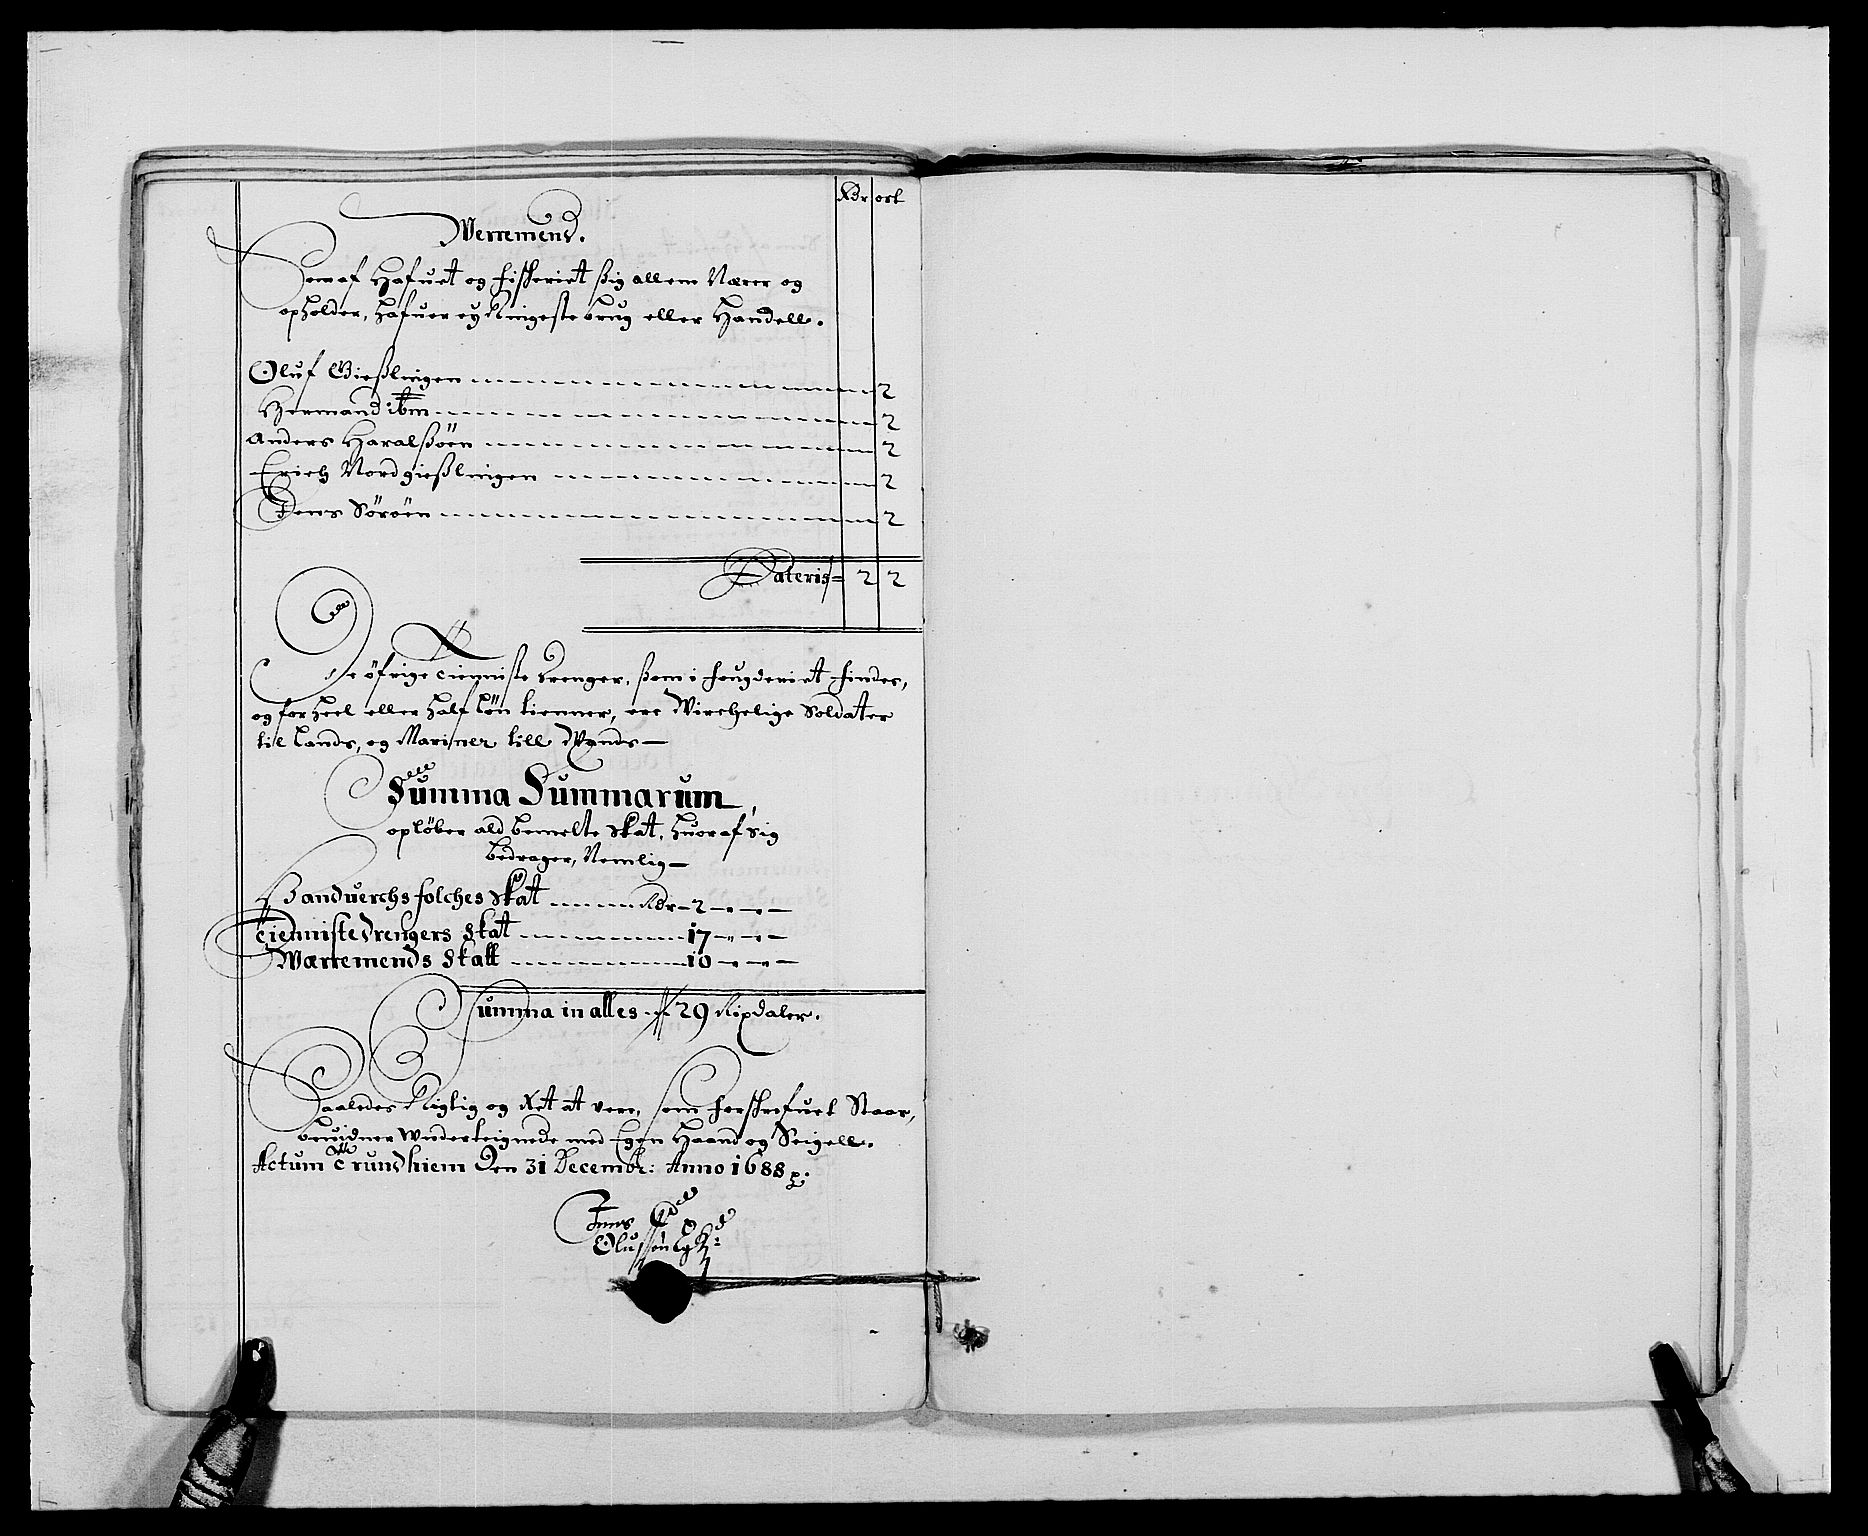 Rdr ort
Werremend.
Som af Hafuet og fischeriet sig allene Nærer og
opholder, hafuer ey Ringeste brug eller Handell.
Oluf Gießlingen 2
Hermand ibm 2
Anders Haralßöen 2
Erich Nordgießlingen 2
Jens Söröen 2
Lateris 2 2
De öfrige tienniste drenger, som i fougderiet findes,
og for heel eller half lön tienner, ere Wirchelige Soldater
til Lands, og Mariner till Wands
Summa Summarum,
oplöber ald bemelte skat, huoraf sig
bedrager, Nemlig
Handuerchsfolches skat Rdr 2
Tiennistedrengers skat 17
Wærremends skatt 10
Summa in alles 29 Rixdaler.
Saaledes Rigtig og Ret at vere, som forschrefuet Staar,
beuidner Underteignede med Egen Haand og Seigell.
Actum Trundhiem Den 31 Decembr: Anno 1688
Jens
Olufsön